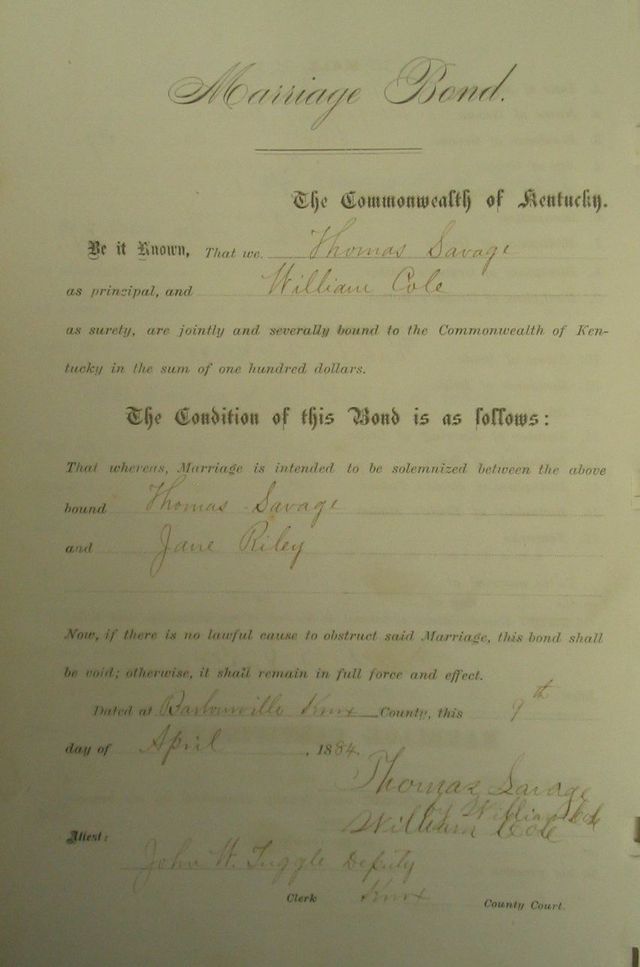 Marriage Bond.
The Commonwealth of Kentucky.
Be it Known, That we, Thomas Savage
as principal, and William Cole
as surety, are jointly and severally bound to the Commonwealth of Ken-
tucky in the sum of one hundred dollars.
The Condition of this Bond is as follows:
That whereas, Marriage is intended to be solemnized between the above
bound Thomas Savage
and Jane Riley
Now, if there is no lawful cause to obstruct said Marriage, this bond shall
be void; otherwise, it shall remain in full force and effect.
Dated at Barbourville Knox County, this 9th
day of April, 1884.
Thomas Savage
By William Cole
William Cole
Attest:
John W. Tuggle Deputy
Clerk Knox County Court.